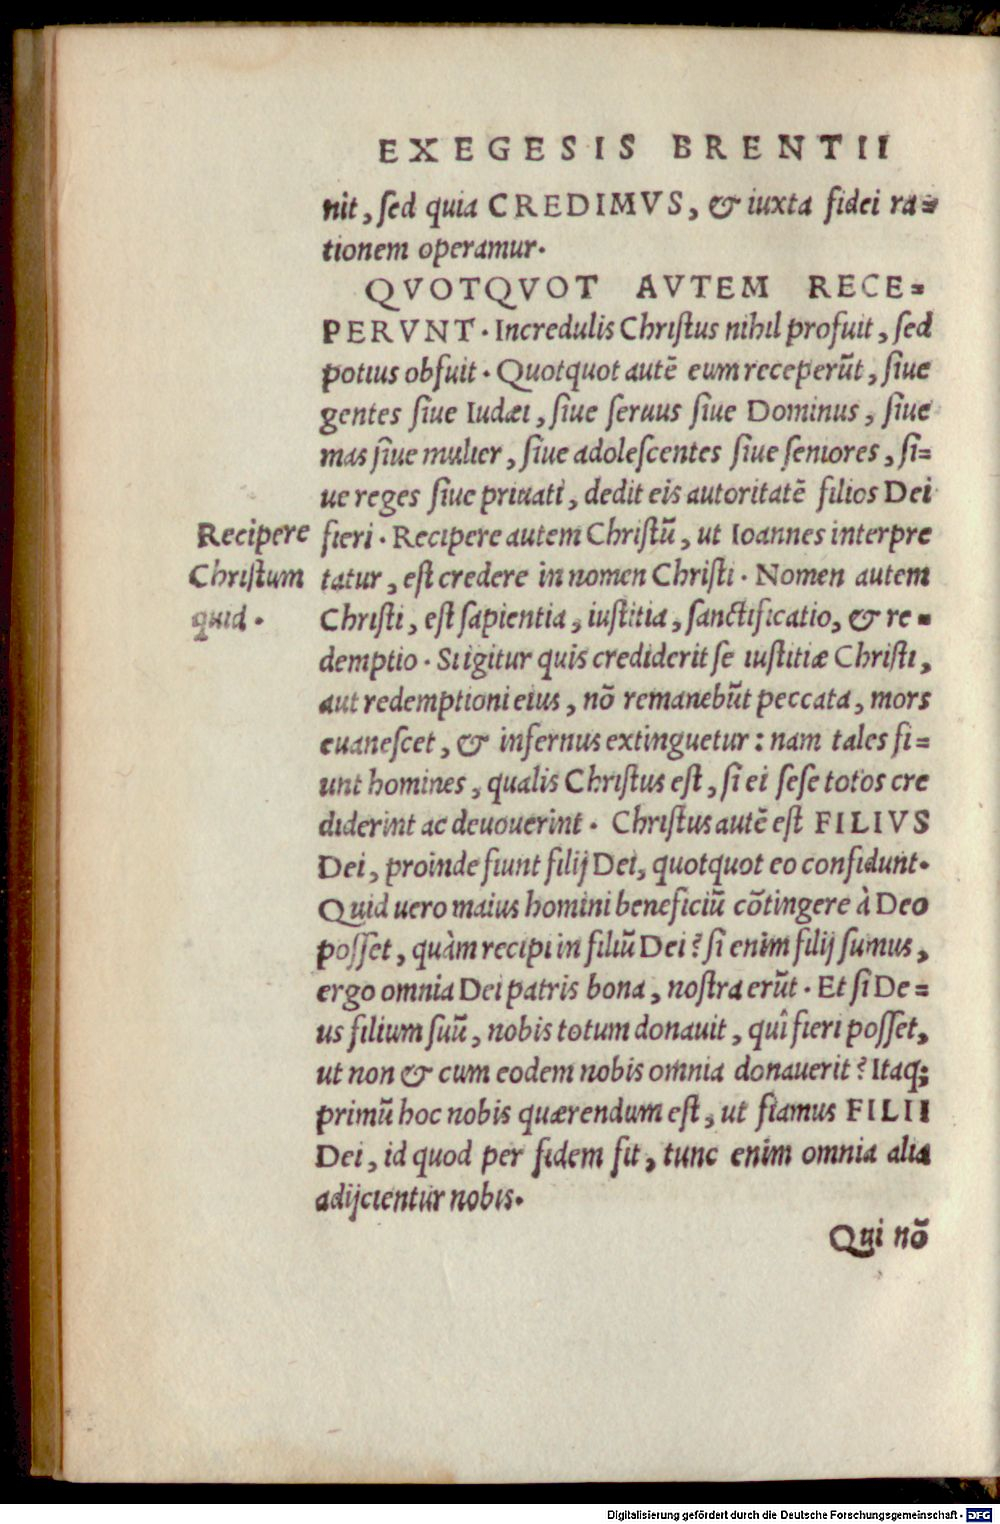 EXEGESIS BRENTII
nit, sed quia CREDIMVS, & iuxta fidei ra=
tionem operamur.
QVOTQVOT AVTEM RECE=
PERVNT. Incredulis Christus nihil profuit, sed
potius obfuit. Quotquot autē eum receperūt, siue
gentes siue Iudæi, siue seruus siue Dominus, siue
mas siue mulier, siue adolescentes siue seniores, si=
ue reges siue priuati, dedit eis autoritatē filios Dei
Recipere fieri. Recipere autem Christū, ut Ioannes interpre
Christum tatur, est credere in nomen Christi. Nomen autem
quid. Christi, est sapientia, iustitia, sanctificatio, & re=
demptio. Si igitur quis crediderit se iustitiæ Christi,
aut redemptioni eius, nō remanebūt peccata, mors
euanescet, & infernus extinguetur: nam tales fi=
unt homines, qualis Christus est, si ei sese totos cre
diderint ac deuouerint. Christus autē est FILIVS
Dei, proinde fiunt filij Dei, quotquot eo confidunt.
Quid uero maius homini beneficiū cōtingere à Deo
posset, quàm recipi in filiū Dei? si enim filij sumus,
ergo omnia Dei patris bona, nostra erūt. Et si De=
us filium suū, nobis totum donauit, quî fieri posset,
ut non & cum eodem nobis omnia donauerit? Itaq;
primū hoc nobis quærendum est, ut fiamus FILII
Dei, id quod per fidem fit, tunc enim omnia alia
adijcientur nobis.
Qui nō
Digitalisierung gefördert durch die Deutsche Forschungsgemeinschaft - DFG